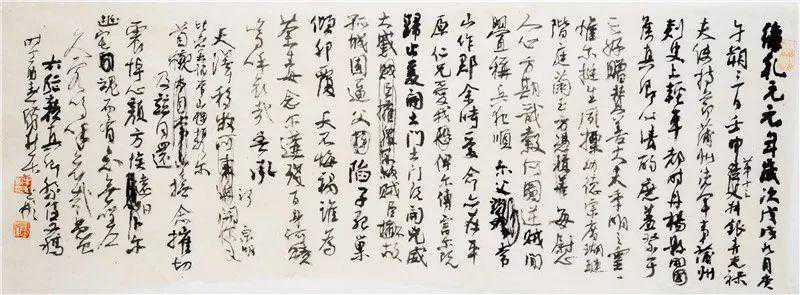 維乾元元年歲次戊戌九月庚
午朔三日壬申第十三叔銀青光祿
夫使持節蒲州諸軍事蒲州
刺史上輕車都尉丹楊縣開國
侯真卿以清酌庶羞祭于
亡姪贈贊善大夫季明之靈
惟爾挺生夙標幼德宗廟瑚璉
階庭蘭玉方憑積善每慰
人心方期戩穀何圖逆賊間
釁稱兵犯順爾父竭誠常
山作郡余時受命亦在平
原仁兄愛我恐俾爾傳言爾既
歸止爰開土門土門既開凶威
大蹙賊臣擁眾不救
孤城圍逼父陷子死巢
傾卵覆天不悔禍誰為
荼毒念爾遘殘百身何贖
嗚呼哀哉吾承
天澤移牧河東近泉明
比者再陷常山攜爾
首櫬及茲同還撫念摧切
震悼心顏方俟遠日卜爾
幽宅魂而有知無嗟
久客嗚呼哀哉尚饗
六臨顏真卿祭侄文稿
時丁酉